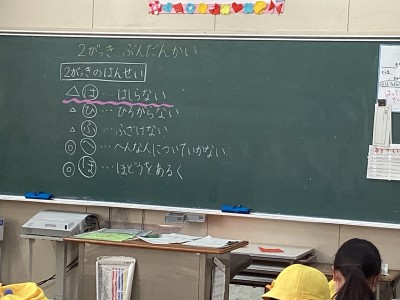 2がっき ぶんだんかい
2がっきのはんせい
△は…はしらない
△ひ…ひろがらない
△ふ…ふざけない
◎へ…へんな人についていかない
◎ほ…ほどうをあるく